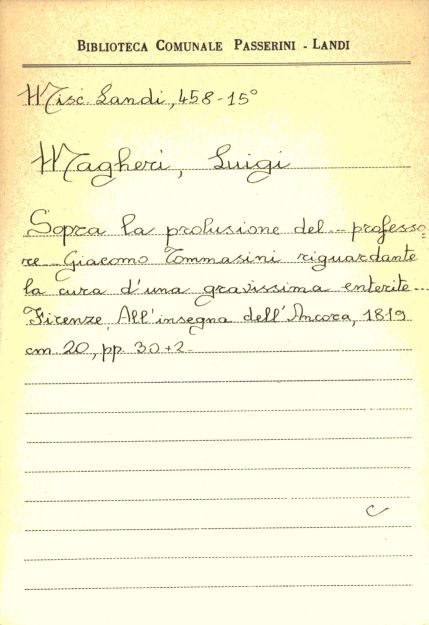 BIBLIOTECA COMUNALE PASSERINI - LANDI
Misc. Landi, 458-15°
Magheri, Luigi
Sopra la prolusione del... professo-
re... Giacomo Tommasini riguardante
la cura d'una gravissima enterite...
Firenze, All'insegna dell'Ancora, 1819
cm 20, pp. 30+2.
C